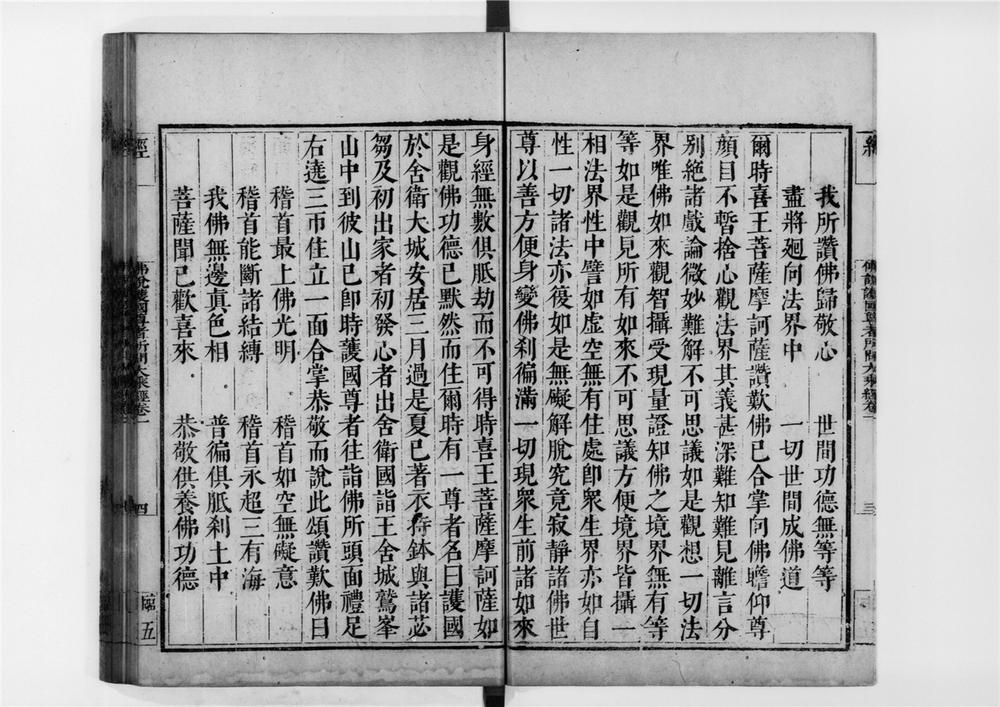 我所讚佛歸敬心　世間功德無等等
盡將廻向法界中　一切世間成佛道
爾時喜王菩薩摩訶薩讚歎佛已合掌向佛瞻仰尊
顔目不暫捨心觀法界其義甚深難知難見離言分
別絕諸戲論微妙難解不可思議如是觀想一切法
界唯佛如來觀智攝受現量證知佛之境界無有等
等如是觀見所有如來不可思議方便境界皆攝一
相法界性中譬如虛空無有住處卽衆生界亦如自
性一切諸法亦復如是無礙解脫究竟寂靜諸佛世
尊以善方便身變佛刹徧滿一切現衆生前諸如來
身經無數俱胝劫而不可得時喜王菩薩摩訶薩如
是觀佛功德已默然而住爾時有一尊者名曰護國
於舍衛大城安居三月過是夏已著衣持鉢與諸苾
芻及初出家者初發心者出舍衛國詣王舍城鷲峯
山中到彼山已卽時護國尊者往詣佛所頭面禮足
右遶三帀住立一面合掌恭敬而說此頌讚歎佛曰
稽首最上佛光明　稽首如空無礙意
稽首能斷諸結縛　稽首永超三有海
我佛無邊眞色相　普徧俱胝刹土中
菩薩聞已歡喜來　恭敬供養佛功德
經
佛說護國尊者所問大乘經卷一
四
臨五
三